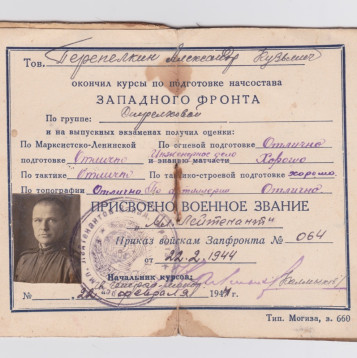 Тов. Перепелкин Александр Кузьмич
окончил курсы по подготовке начсостава
ЗАПАДНОГО ФРОНТА
По группе: Стрелковой
и на выпускных экзаменах получил оценки:
По Марксистско-Ленинской подготовке Отлично
По огневой подготовке Отлично
Инженерное дело и знанию матчасти Хорошо
По тактике Отлично
По тактико-строевой подготовке хорошо
По топографии Отлично По артиллерии Отлично
ПРИСВОЕНО ВОЕННОЕ ЗВАНИЕ
"Мл. Лейтенант"
Приказ войскам Запфронта № 064
от 22.2.1944
Начальник курсов:
№ 22 февраля 1944
Тип. Могиза, з. 660